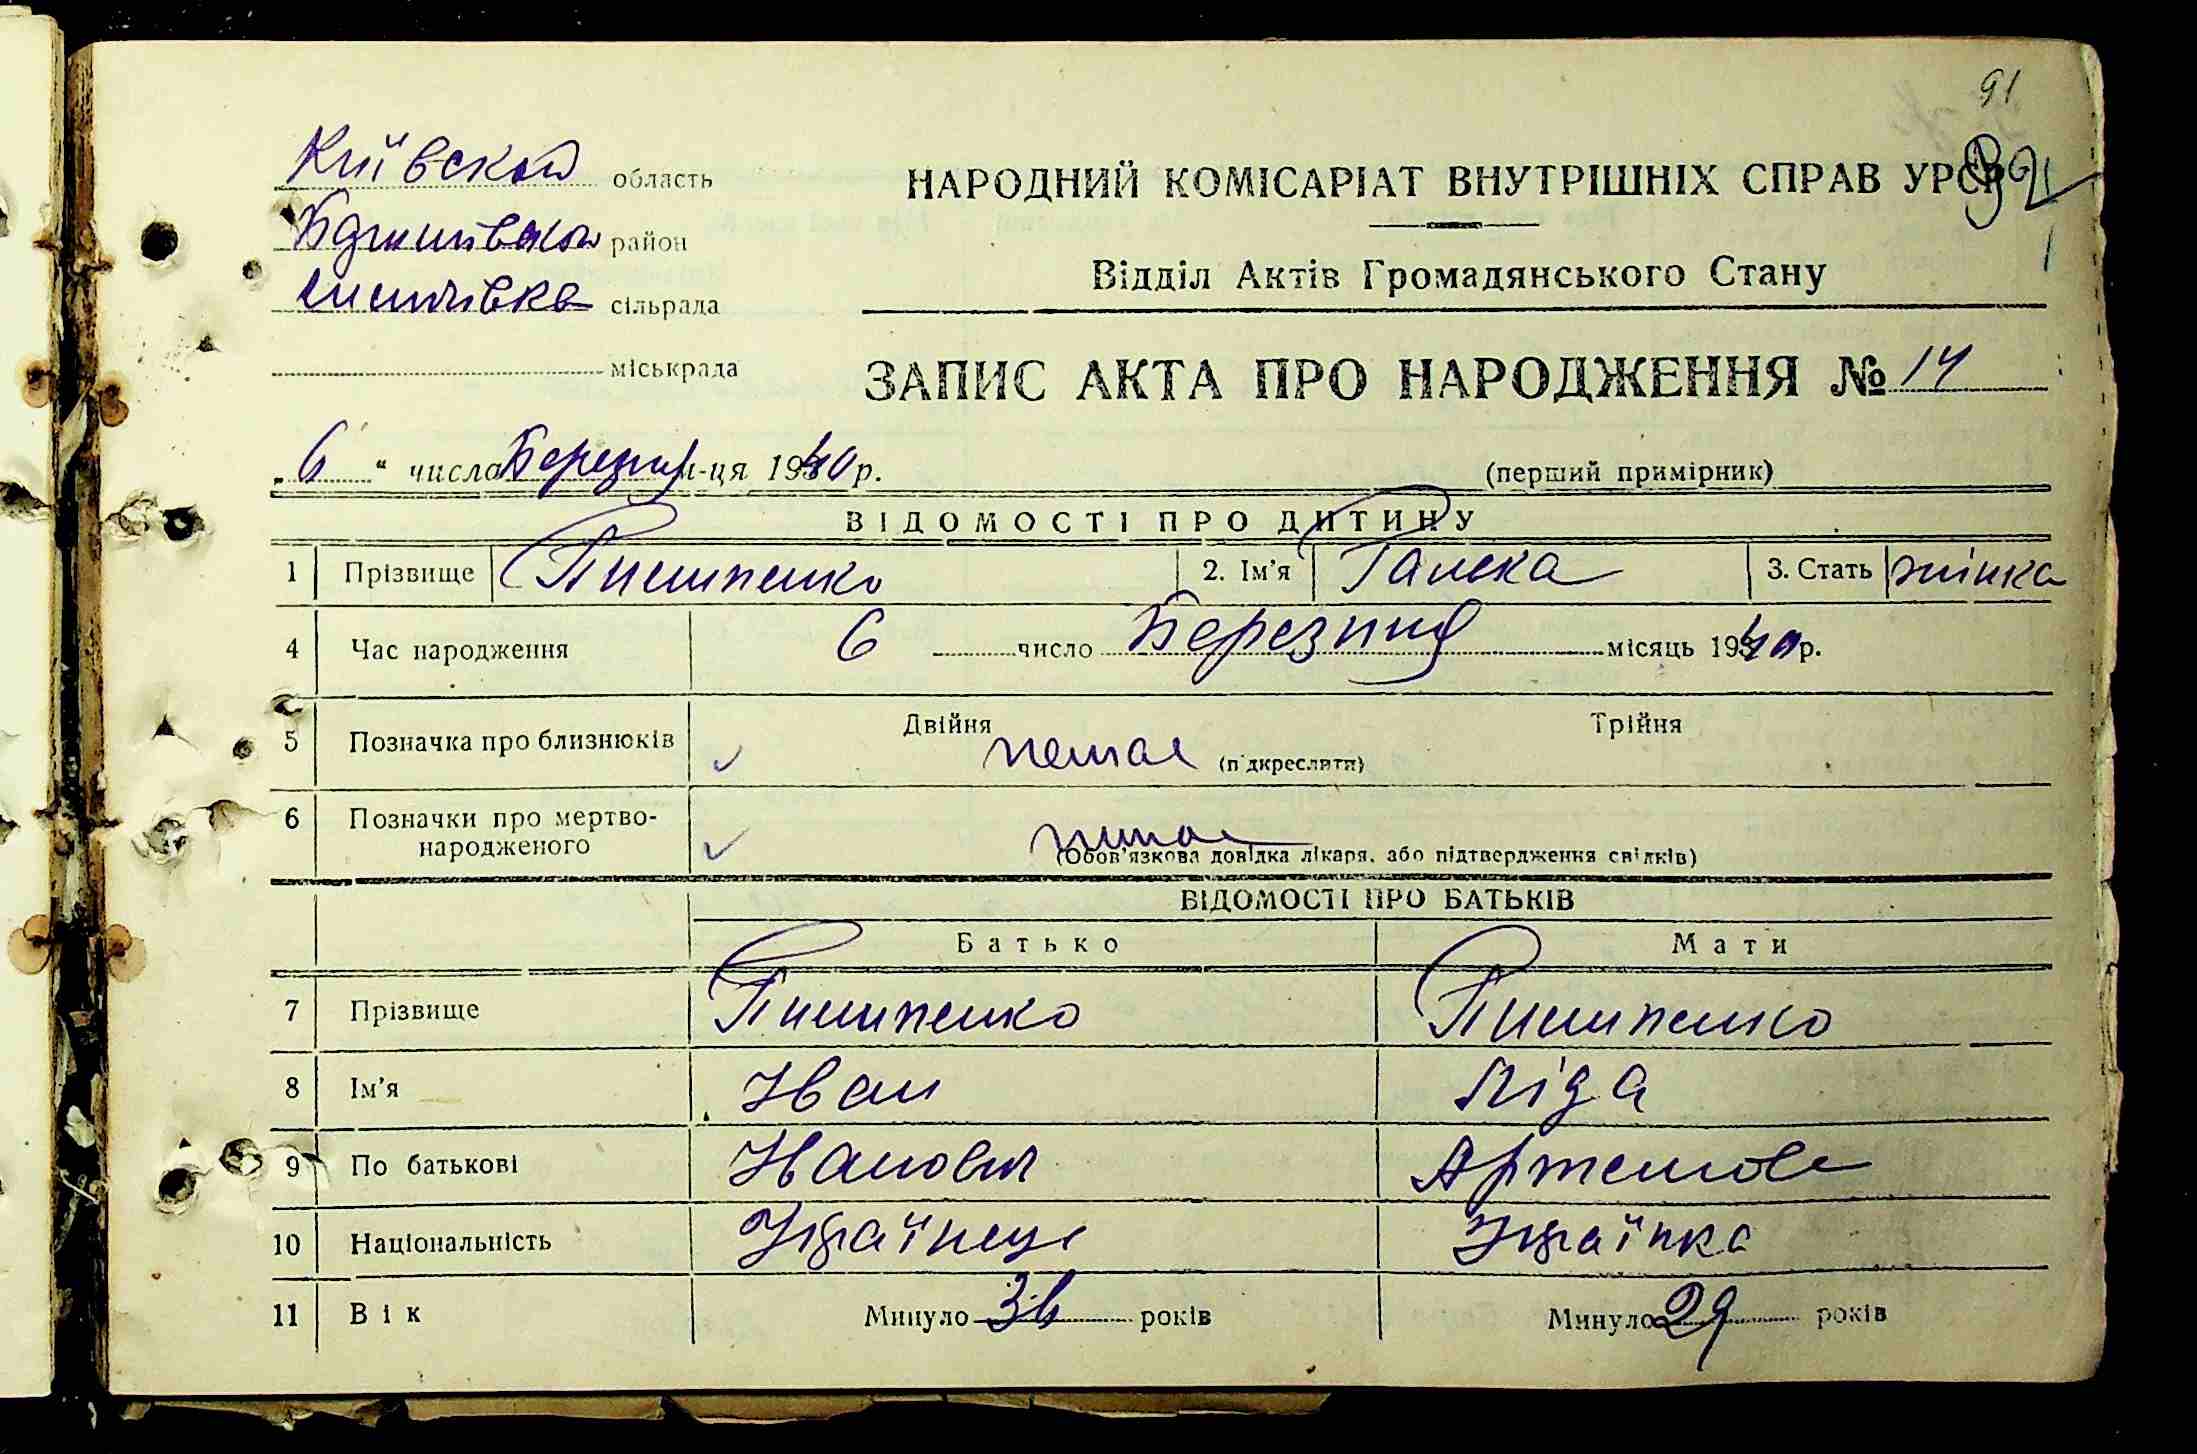 91
92
Київської область
НАРОДНИЙ КОМІСАРІАТ ВНУТРІШНІХ СПРАВ УРСР
район
Відділ Актів Громадянського Стану
сільрада
міськрада
ЗАПИС АКТА ПРО НАРОДЖЕННЯ № 14
„6“ числа Березня м-ця 1940 р.
(перший примірник)
ВІДОМОСТІ ПРО ДИТИНУ
1 Прізвище 2. Ім'я Галека 3. Стать жінка
4 Час народження 6 число Березня місяць 1940 р.
5 Позначка про близнюків Двійня немає (підкреслити) Трійня
6 Позначки про мертво-
народженого немає
(Обов'язкова довідка лікаря, або підтвердження свідків)
ВІДОМОСТІ ПРО БАТЬКІВ
Батько Мати
7 Прізвище
8 Ім'я Іван Ліда
9 По батькові Іванович Артемов
10 Національність Українець Українка
11 Вік Минуло 36 років Минуло 29 років